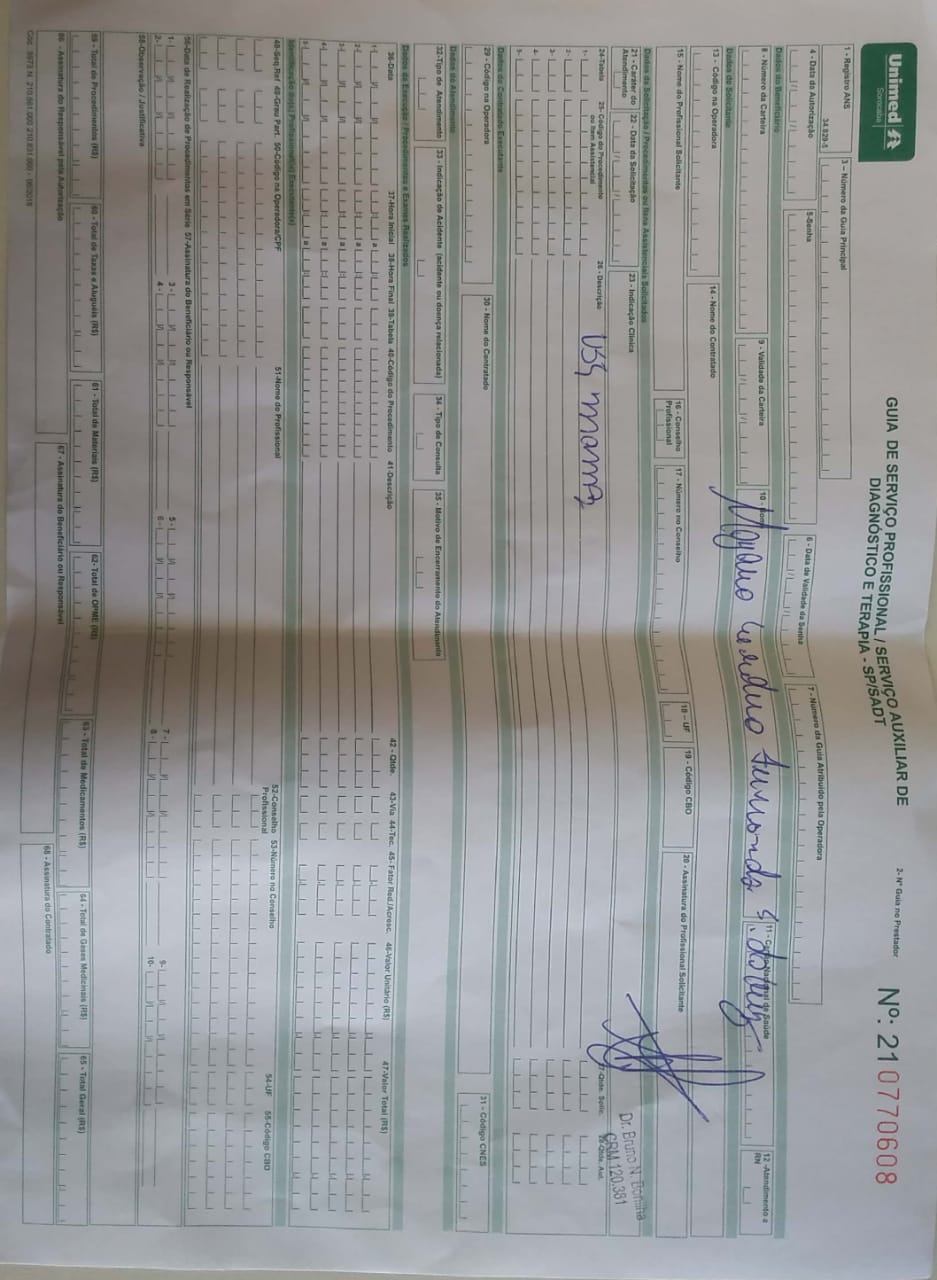 Unimed
Sorocaba
GUIA DE SERVIÇO PROFISSIONAL / SERVIÇO AUXILIAR DE
DIAGNÓSTICO E TERAPIA - SP/SADT
2- Nº Guia no Prestador
Nº: 210770608
1 - Registro ANS
34.829-5
3 – Número da Guia Principal
4 - Data da Autorização
5-Senha
6 - Data de Validade da Senha
7 - Número da Guia Atribuído pela Operadora
Dados do Beneficiário
8 - Número da Carteira
9 - Validade da Carteira
10 - Nome
11 - Cartão Nacional de Saúde
12 - Atendimento a
RN
Dados do Solicitante
13 - Código na Operadora
14 - Nome do Contratado
15 - Nome do Profissional Solicitante
16 - Conselho
Profissional
17 - Número no Conselho
18 – UF
19 - Código CBO
20 - Assinatura do Profissional Solicitante
Dados da Solicitação / Procedimentos ou Itens Assistenciais Solicitados
21 - Caráter do
Atendimento
22 - Data da Solicitação
23 - Indicação Clínica
Dr. Bruno N. Bonilha
CRM 120.381
24-Tabela
25- Código do Procedimento
ou Item Assistencial
26 - Descrição
27-Qtde. Solic.
28-Qtde. Aut.
1-
USG mamas
2-
3-
4-
5-
Dados do Contratado Executante
29 - Código na Operadora
30 - Nome do Contratado
31 - Código CNES
Dados do Atendimento
32-Tipo de Atendimento
33 - Indicação de Acidente (acidente ou doença relacionada)
34 - Tipo de Consulta
35 - Motivo de Encerramento do Atendimento
Dados da Execução / Procedimentos e Exames Realizados
36-Data
37-Hora Inicial
38-Hora Final
39-Tabela
40-Código do Procedimento
41-Descrição
42 - Qtde.
43-Via
44-Tec.
45- Fator Red./Acresc.
46-Valor Unitário (R$)
47-Valor Total (R$)
1-
a
2-
a
3-
a
4-
a
5-
a
Identificação do(s) Profissional(is) Executante(s)
48-Seq.Ref
49-Grau Part.
50-Código na Operadora/CPF
51-Nome do Profissional
52-Conselho
Profissional
53-Número no Conselho
54-UF
55-Código CBO
56-Data de Realização de Procedimentos em Série
57-Assinatura do Beneficiário ou Responsável
1-
3-
5-
7-
9-
2-
4-
6-
8-
10-
58-Observação / Justificativa
59 - Total de Procedimentos (R$)
60 - Total de Taxas e Aluguéis (R$)
61 - Total de Materiais (R$)
62- Total de OPME (R$)
63 - Total de Medicamentos (R$)
64 - Total de Gases Medicinais (R$)
65 - Total Geral (R$)
66 - Assinatura do Responsável pela Autorização
67 - Assinatura do Beneficiário ou Responsável
68 - Assinatura do Contratado